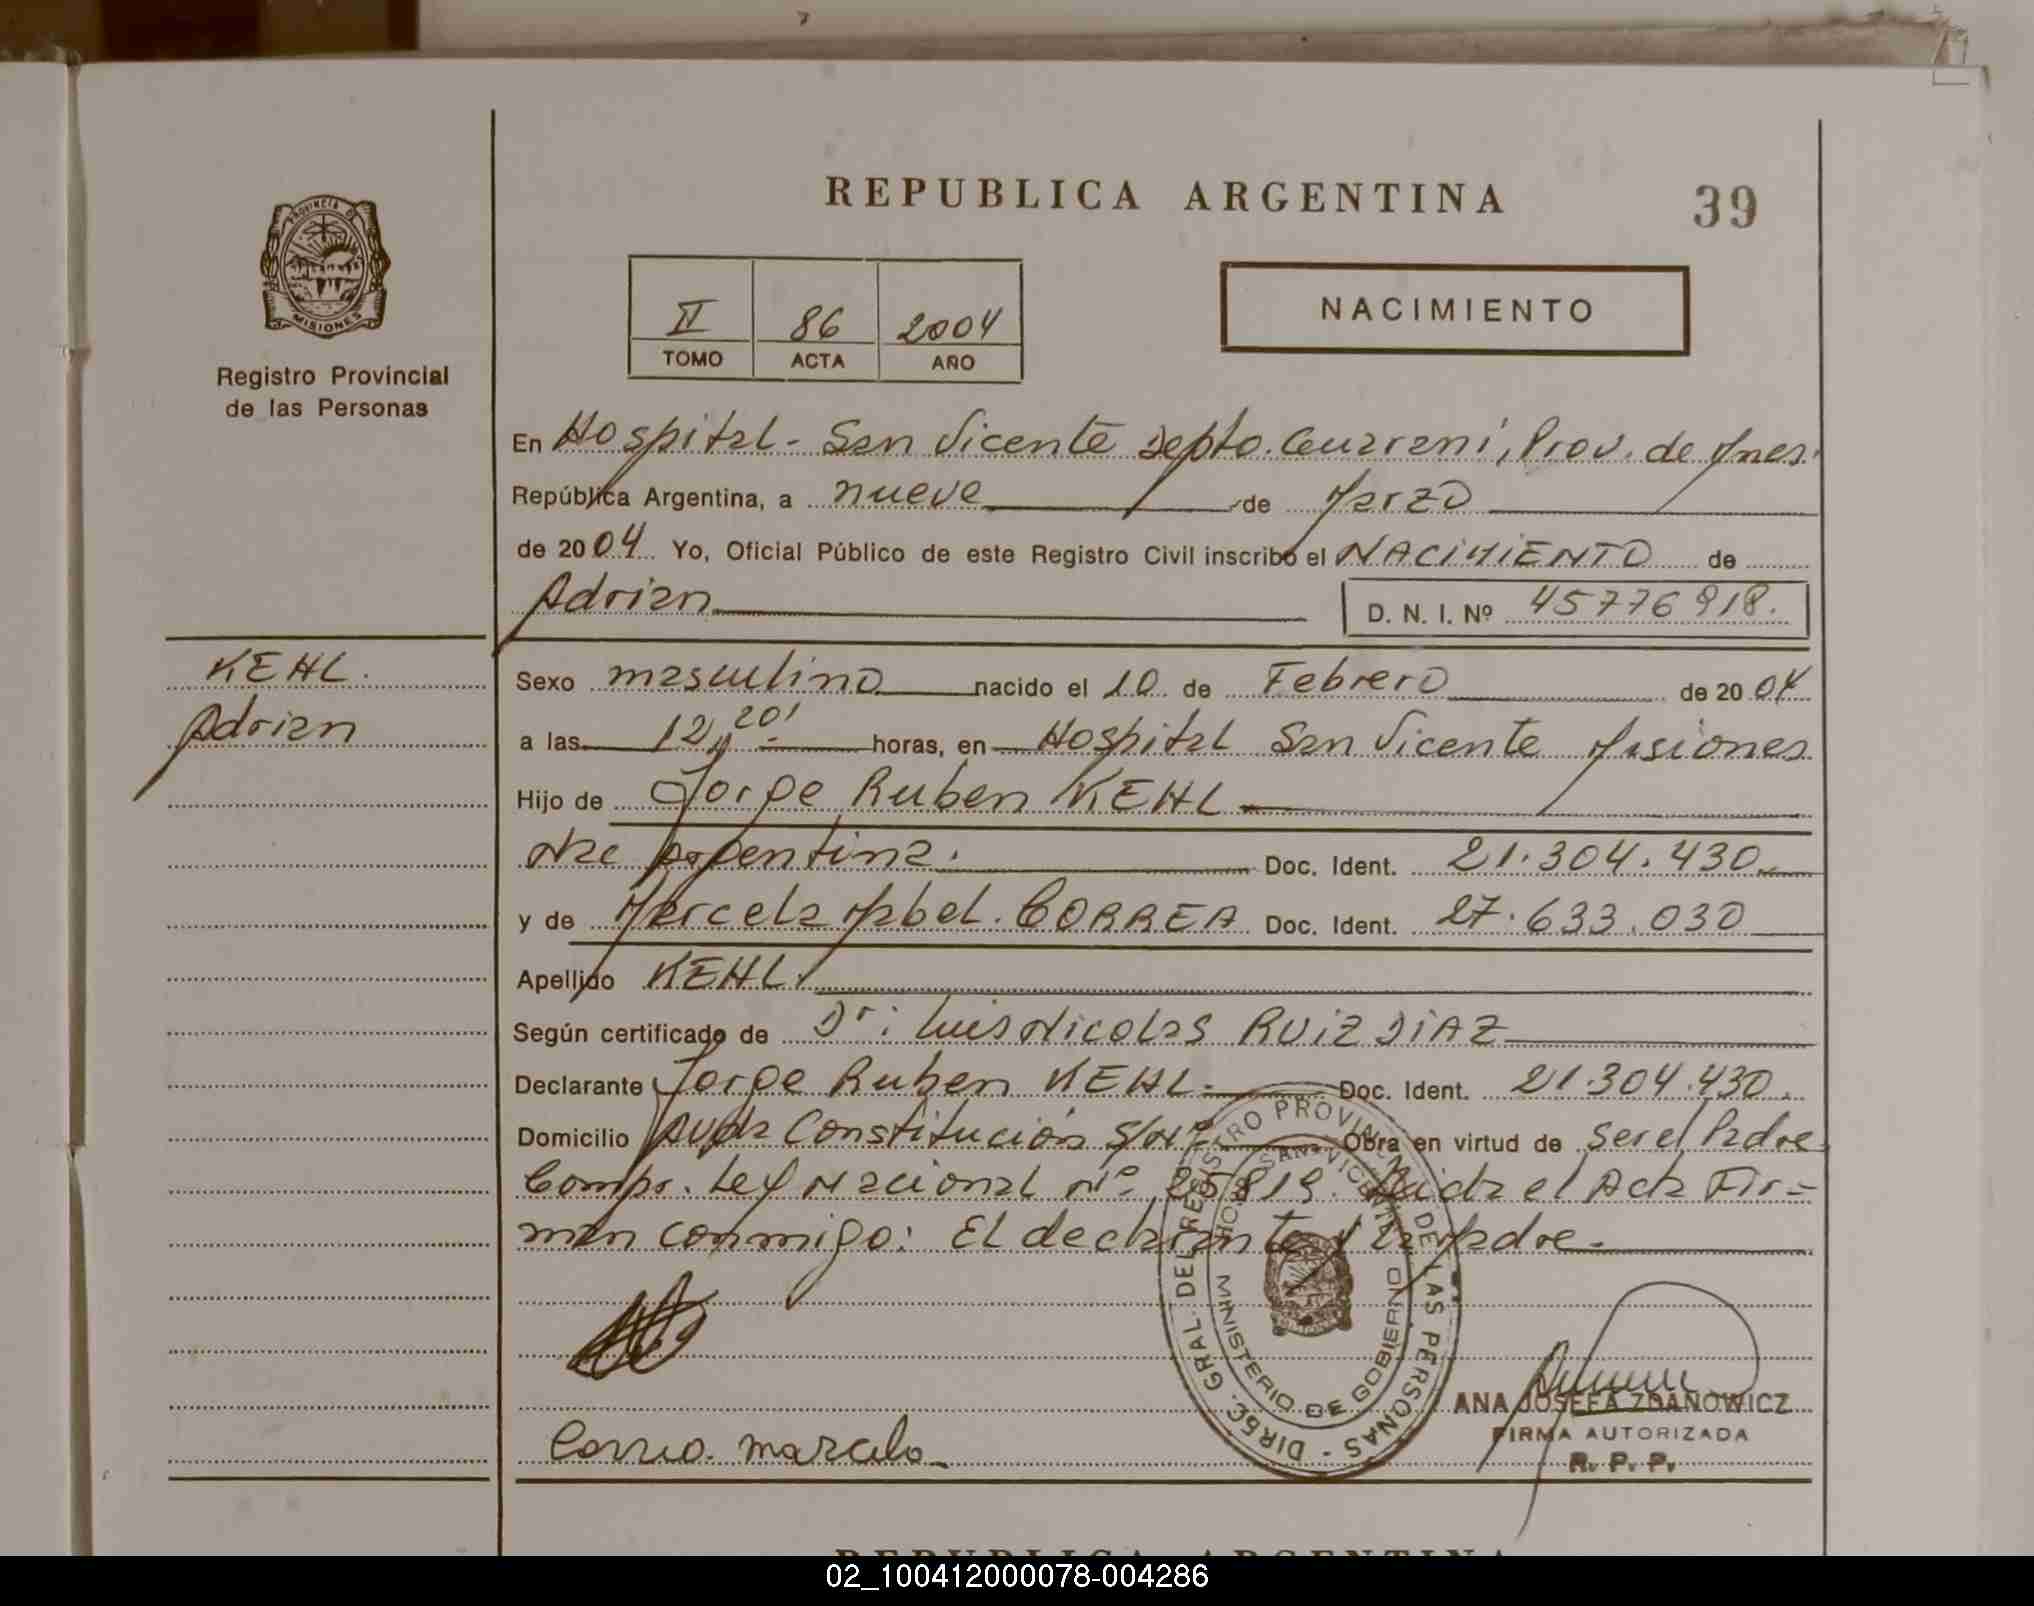 REPUBLICA ARGENTINA
39
PROVINCIA DE MISIONES
Registro Provincial
de las Personas
II 86 2004
TOMO ACTA AÑO
NACIMIENTO
En Hospital - San Vicente Depto. Guarani, Prov. de Mnes.
República Argentina, a nueve de Marzo
de 2004 Yo, Oficial Público de este Registro Civil inscribo el NACIMIENTO de
Adrian
D. N. I. Nº 45776918.
KEHL.
Adrian
Sexo masculino nacido el 10 de Febrero de 2004
a las 12,20' horas, en Hospital San Vicente Misiones
Hijo de Jorge Ruben KEHL
Nac Argentina. Doc. Ident. 21.304.430
y de Marcela Mabel. CORREA Doc. Ident. 27.633.030
Apellido KEHL.
Según certificado de Dr: Luis Nicolas RUIZ DIAZ
Declarante Jorge Ruben KEHL. Doc. Ident. 21.304.430.
Domicilio Avda Constitución S/Nº Obra en virtud de ser el Padre
Comp. Ley Nacional Nº 25819. Leida el Acta Fir=
man conmigo: El declarante y la Madre.
DIREC. GRAL. DEL REGISTRO PROVINCIAL DE LAS PERSONAS
SAN VICENTE
MINISTERIO DE GOBIERNO
ANA JOSEFA ZDANOWICZ
FIRMA AUTORIZADA
R. P. P.
Correa. marcela
REPUBLICA ARGENTINA
02_100412000078-004286